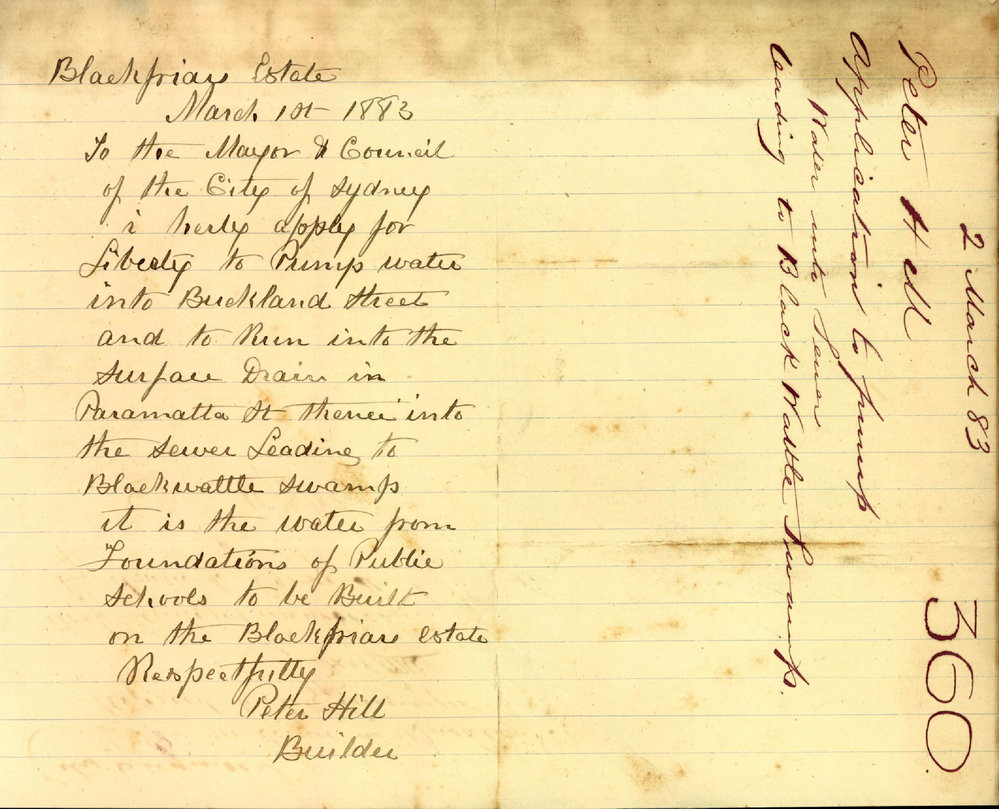 Blackfriars Estate
March 1st 1883
To the Mayor & Council
of the City of Sydney
i herby apply for
Liberty to Pump water
into Buckland Street
and to Run into the
Surface Drain in
Paramatta St thence into
the Sewer Leading to
Blackwattle Swamp
it is the water from
Foundations of Public
Schools to be Built
on the Blackfriars Estate
Respectfully
Peter Hill
Builder
2 March 83
360.
Peter Hill
Application to pump
Water into Sewer
leading to Black Wattle Swamp.